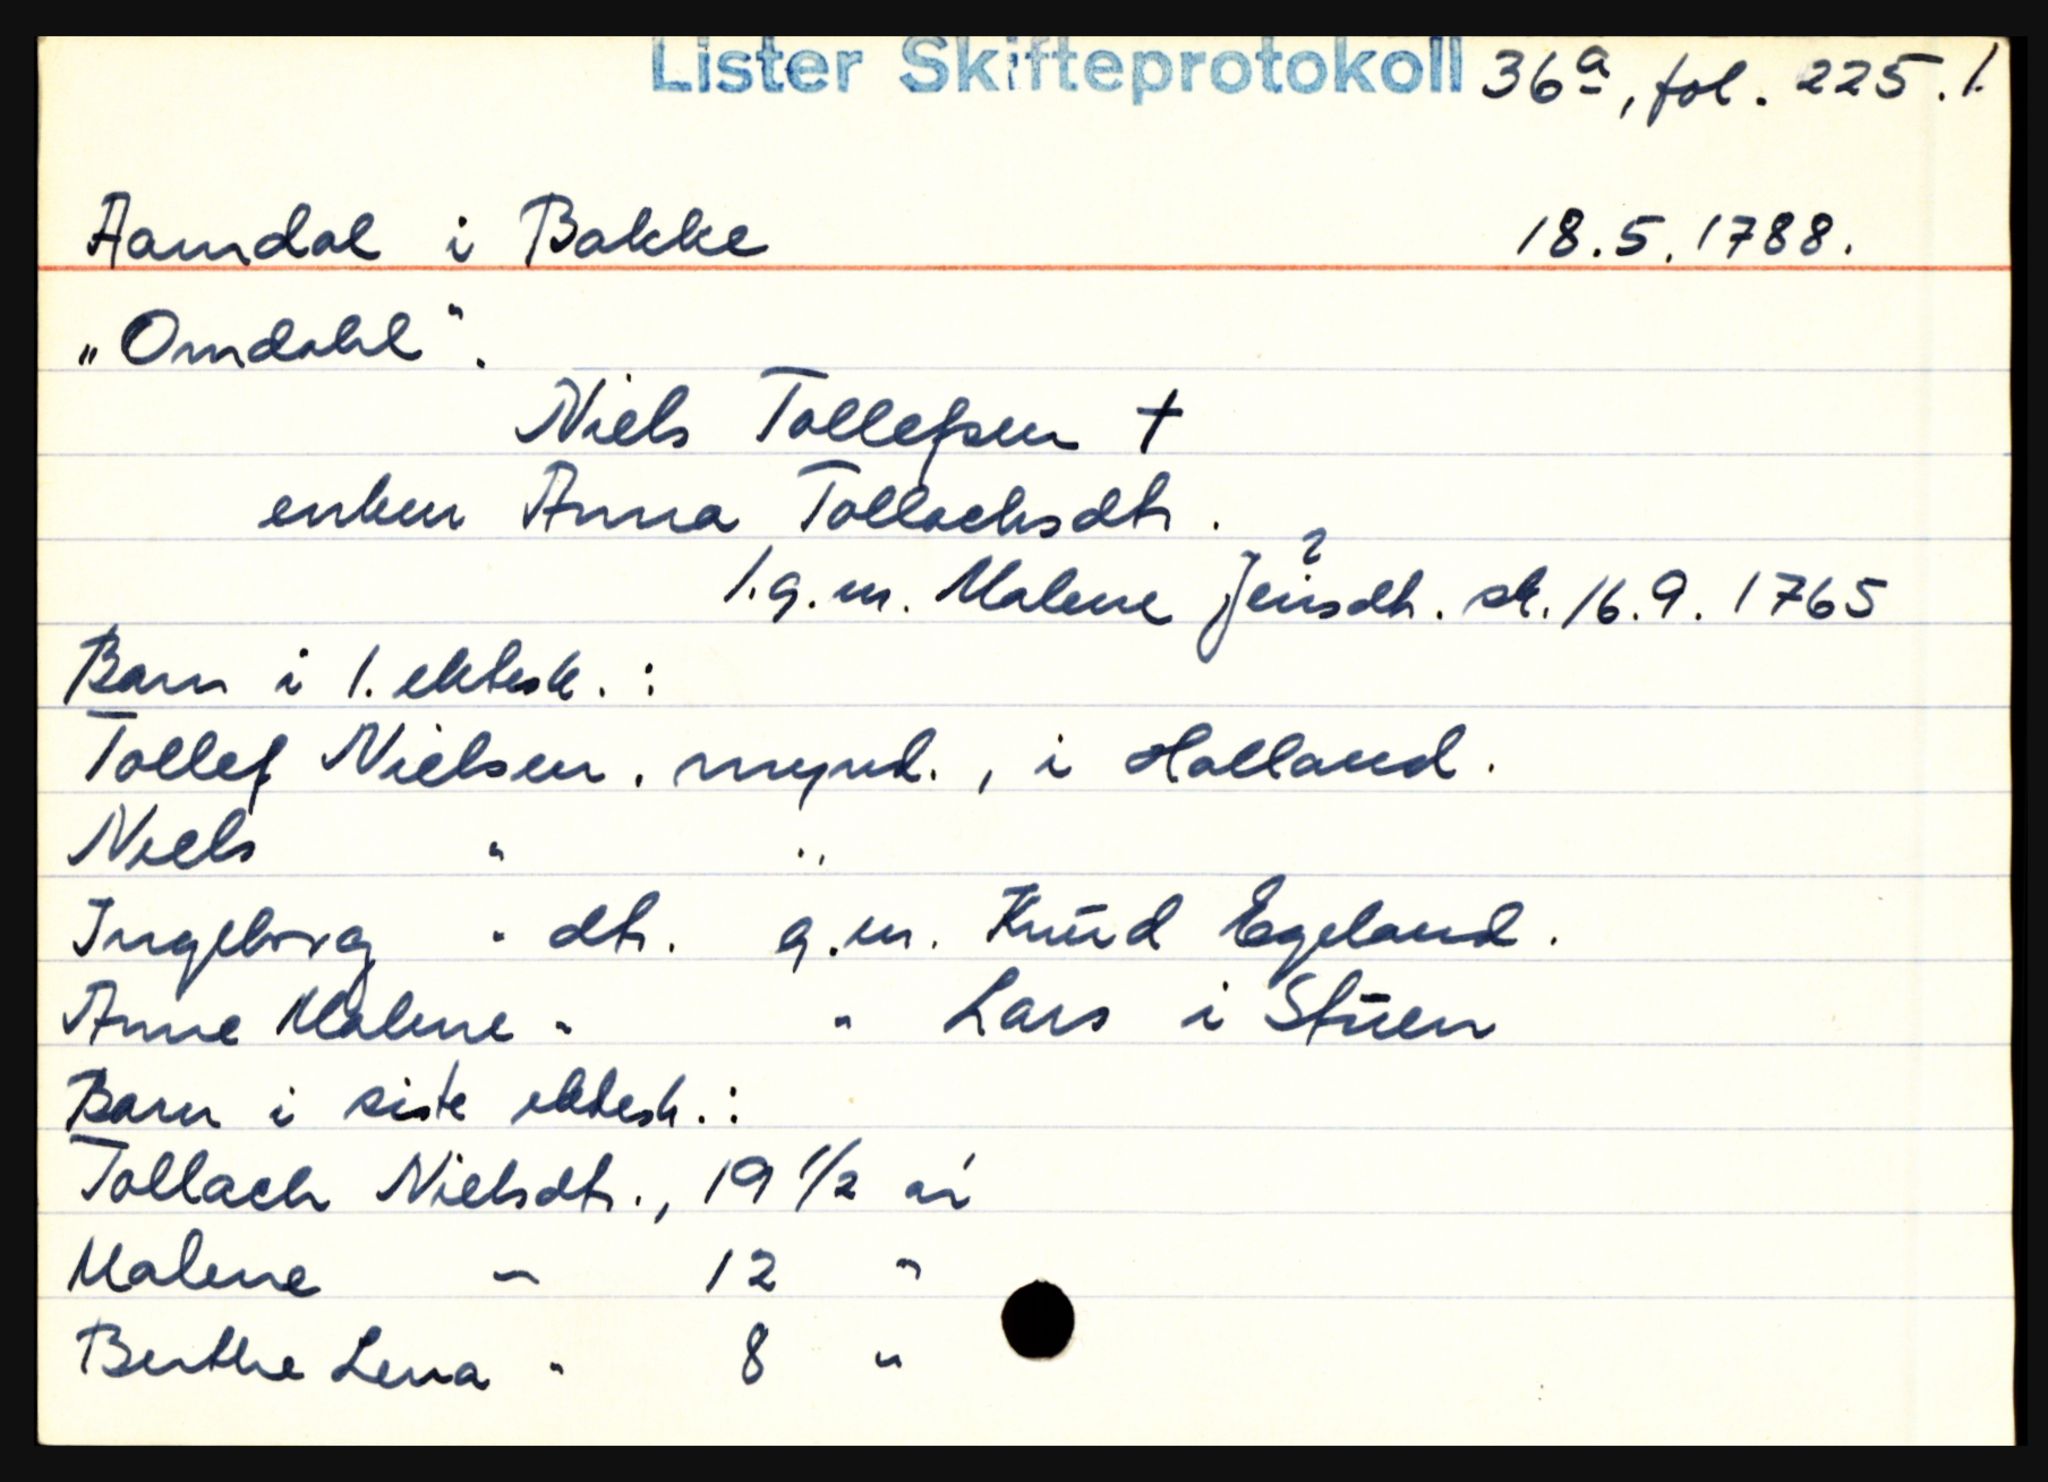 Lister Skifteprotokoll 36a, fol. 225.1.
Aamdal i Bakke 18.5.1788.
„Omdahl".
Niels Tollefsen †
enken Anna Tollachsdtr.
?
1.g.m. Malene Jensdtr. sk. 16.9.1765
Barn i 1. ektesk. :
Tollef Nielsen. mynd., i Holland.
Niels " "
Ingeborg " dtr. g.m. Knud Egeland.
Anne Malene " " Lars i Stuen
Barn i siste ektesk. :
Tollach Nielsdtr., 19 1/2 år
Malene " 12 "
Berthe Lena " 8 "